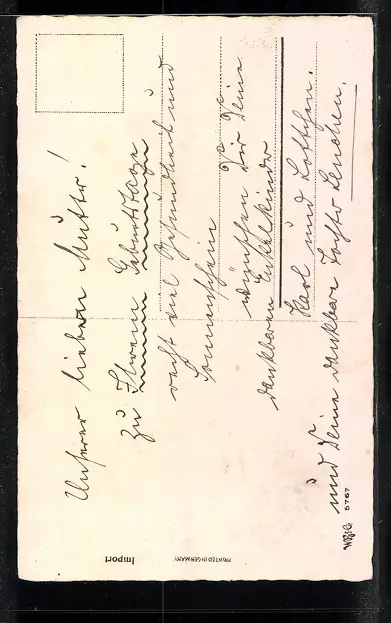 Unserer lieben Mutter!
zu Ihrem Geburtstage
recht viel Gesundheit und
Sonnenschein
wünschen Dir Deine
dankbaren Enkelkinder
Karl und Lottchen.
und Deine dankbare Tochter Lenchen.
5767
PRINTED IN GERMANY
Import